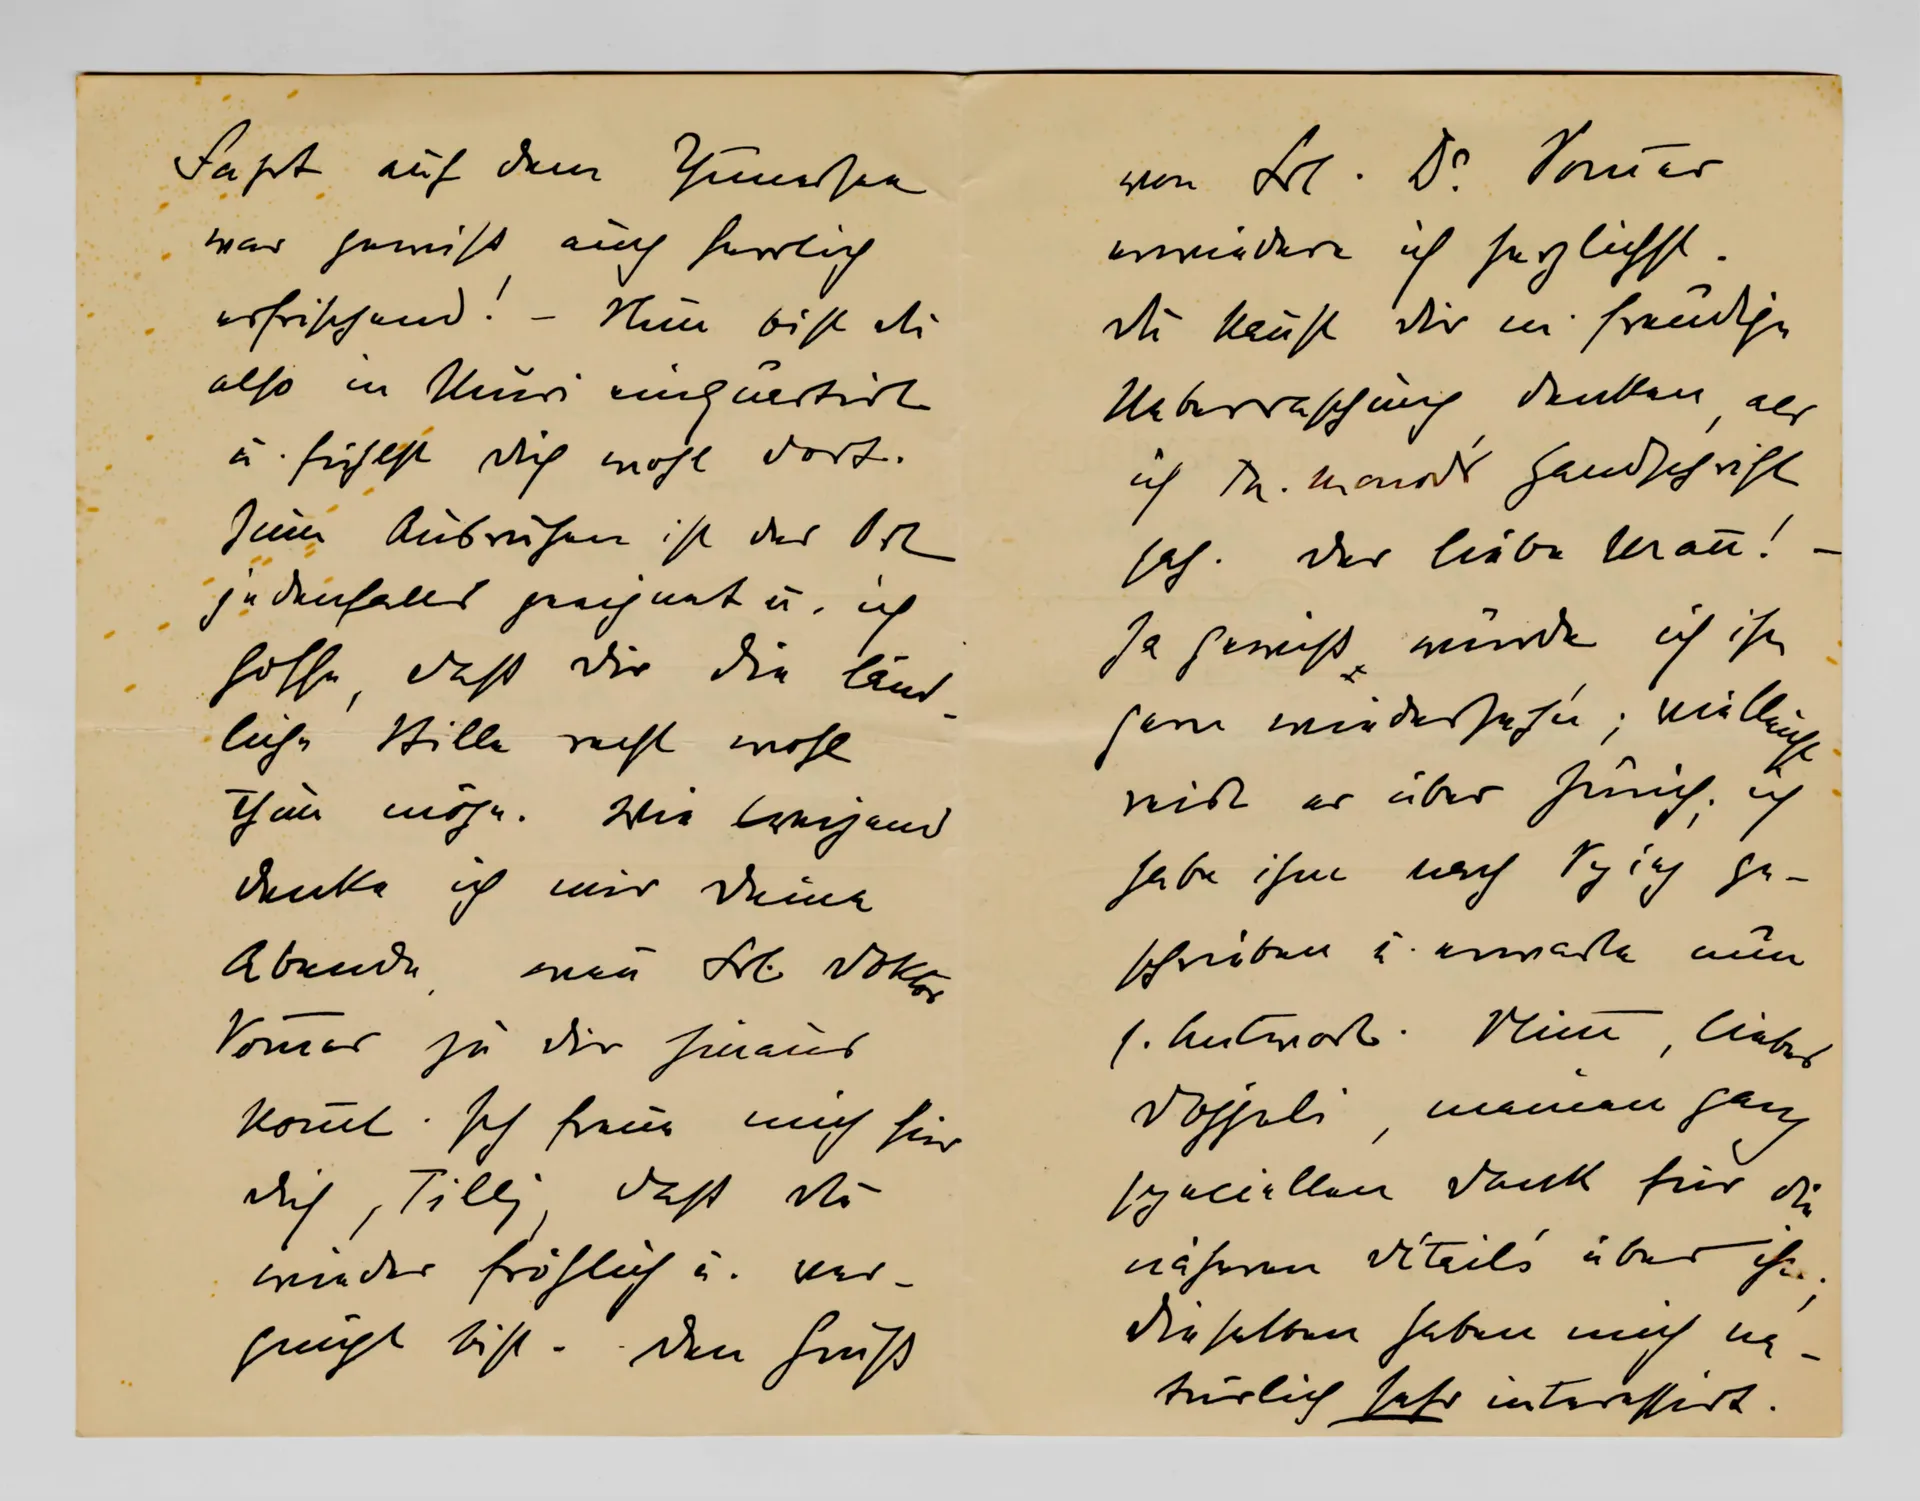 Fahrt auf dem Thunersee
war gewiß auch herrlich
erfrischend! – Nun bist du
also in Muri einquartirt
u. fühlst dich wohl dort.
Zum Ausruhen ist der Ort
jedenfalls geeignet u. ich
hoffe, daß dir die länd-
liche Stille recht wohl
thun möge. Wie
denke ich mir deine
Abende, wen̄ Frl. Doktor
Vom̄er zu dir hinaus
kom̄t. Ich freue mich für
dich, Tilly, daß du
wieder fröhlich u. ver-
gnügt bist. – Den Gruß
von Frl. Dr. Vom̄er
erwiedere ich herzlichst.
Du kan̄st dir m. freudige
Ueberraschung denken, als
ich Th. Handschrift
sah. Der liebe Man̄! –
Ja gewiß, würde ich ihn
gern wiedersehen; vielleicht
reist er über Zürich; ich
habe ihm nach ge-
schrieben u. erwarte nun
s. Antwort. Nim̄, liebes
Doggeli, meinen ganz
speciellen Dank für die
näheren Détails über ihn;
dieselben haben mich na-
türlich sehr interessirt.